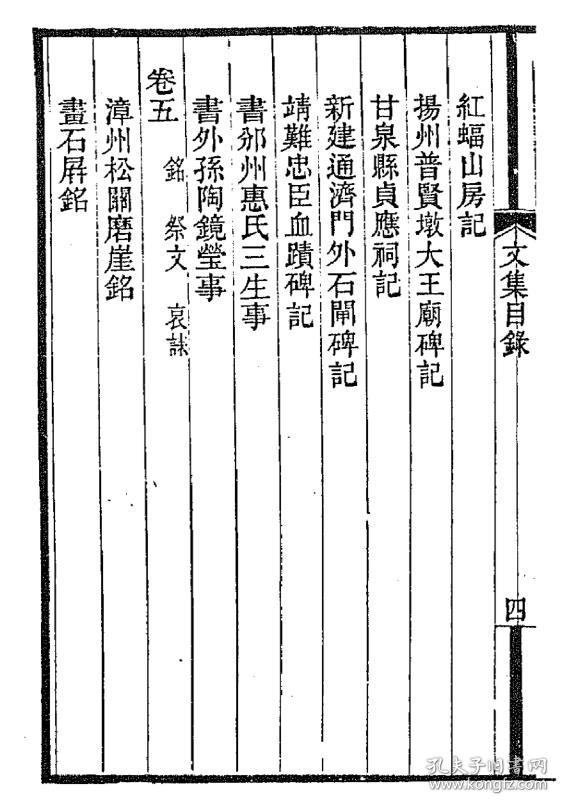 文集目錄
四
紅蝠山房記
揚州普賢墩大王廟碑記
甘泉縣貞應祠記
新建通濟門外石閘碑記
靖難忠臣血蹟碑記
書邠州惠氏三生事
書外孫陶鏡瑩事
卷五 銘 祭文 哀誄
漳州松關磨崖銘
畫石屛銘
孔夫子旧書网
www.kongfz.com